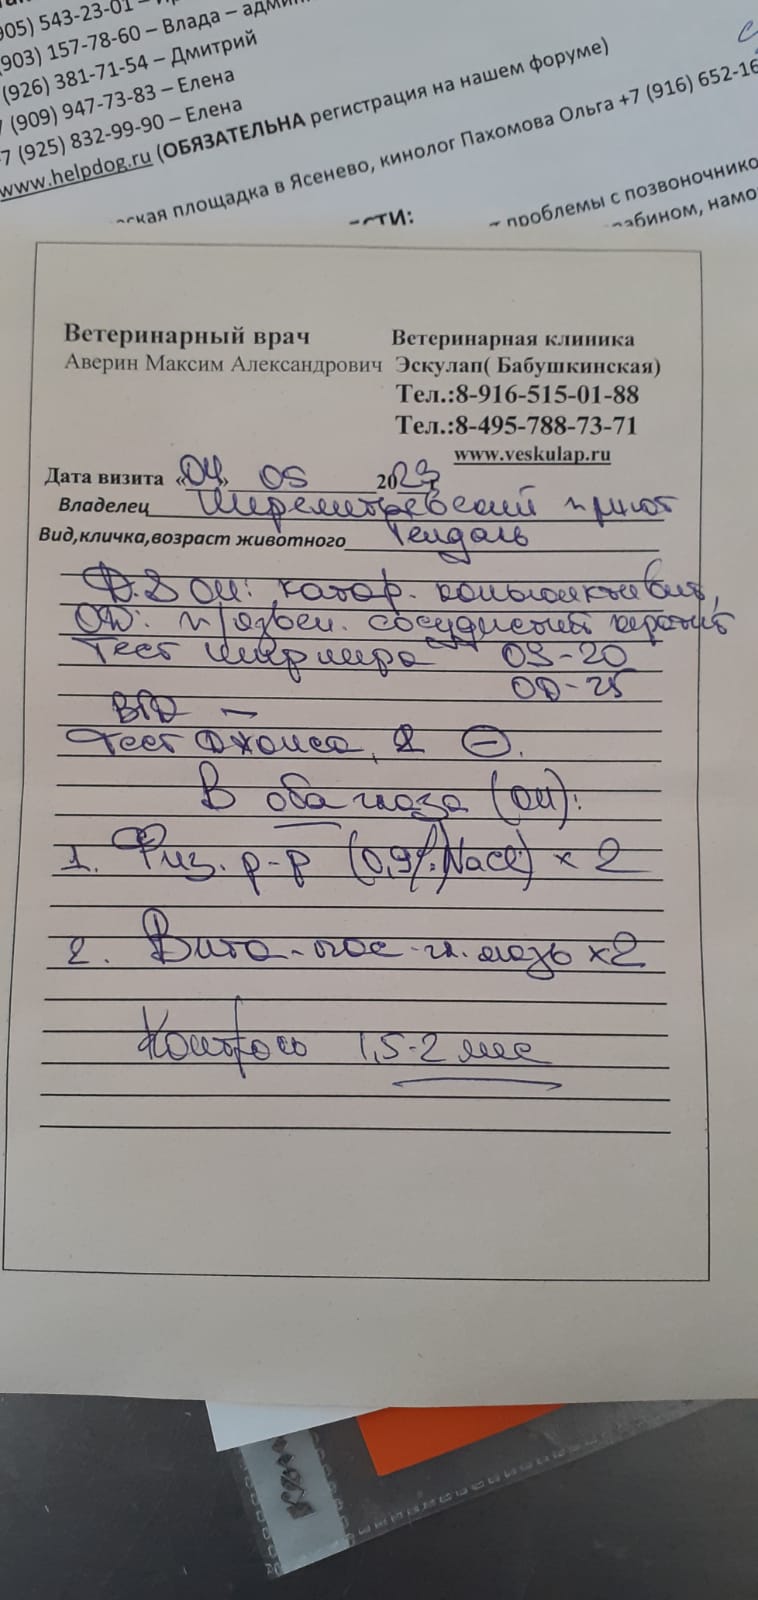 905) 543-23-01 –
(903) 157-78-60 – Влада – адми
(926) 381-71-54 – Дмитрий
7 (909) 947-73-83 – Елена
+7 (925) 832-99-90 – Елена
www.helpdog.ru (ОБЯЗАТЕЛЬНА регистрация на нашем форуме)
ская площадка в Ясенево, кинолог Пахомова Ольга +7 (916) 652-16
сти:
проблемы с позвоночнико
Ветеринарный врач
Аверин Максим Александрович
Ветеринарная клиника
Эскулап( Бабушкинская)
Тел.:8-916-515-01-88
Тел.:8-495-788-73-71
www.veskulap.ru
Дата визита «04» 05 2023
Владелец Шереметьевский приют
Вид,кличка,возраст животного Гендаль
D.S OU: катар. конъюнктивит,
OD: п/язвен. сосудистый кератит
Тест Ширмера OS-20
OD-25
ВГД –
Тест Джонса, 2 (–).
В оба глаза (OU):
1. Физ. р-р (0,9% NaCl) x 2
2. Вита-пос гл. мазь x2
Контроль 1,5-2 мес